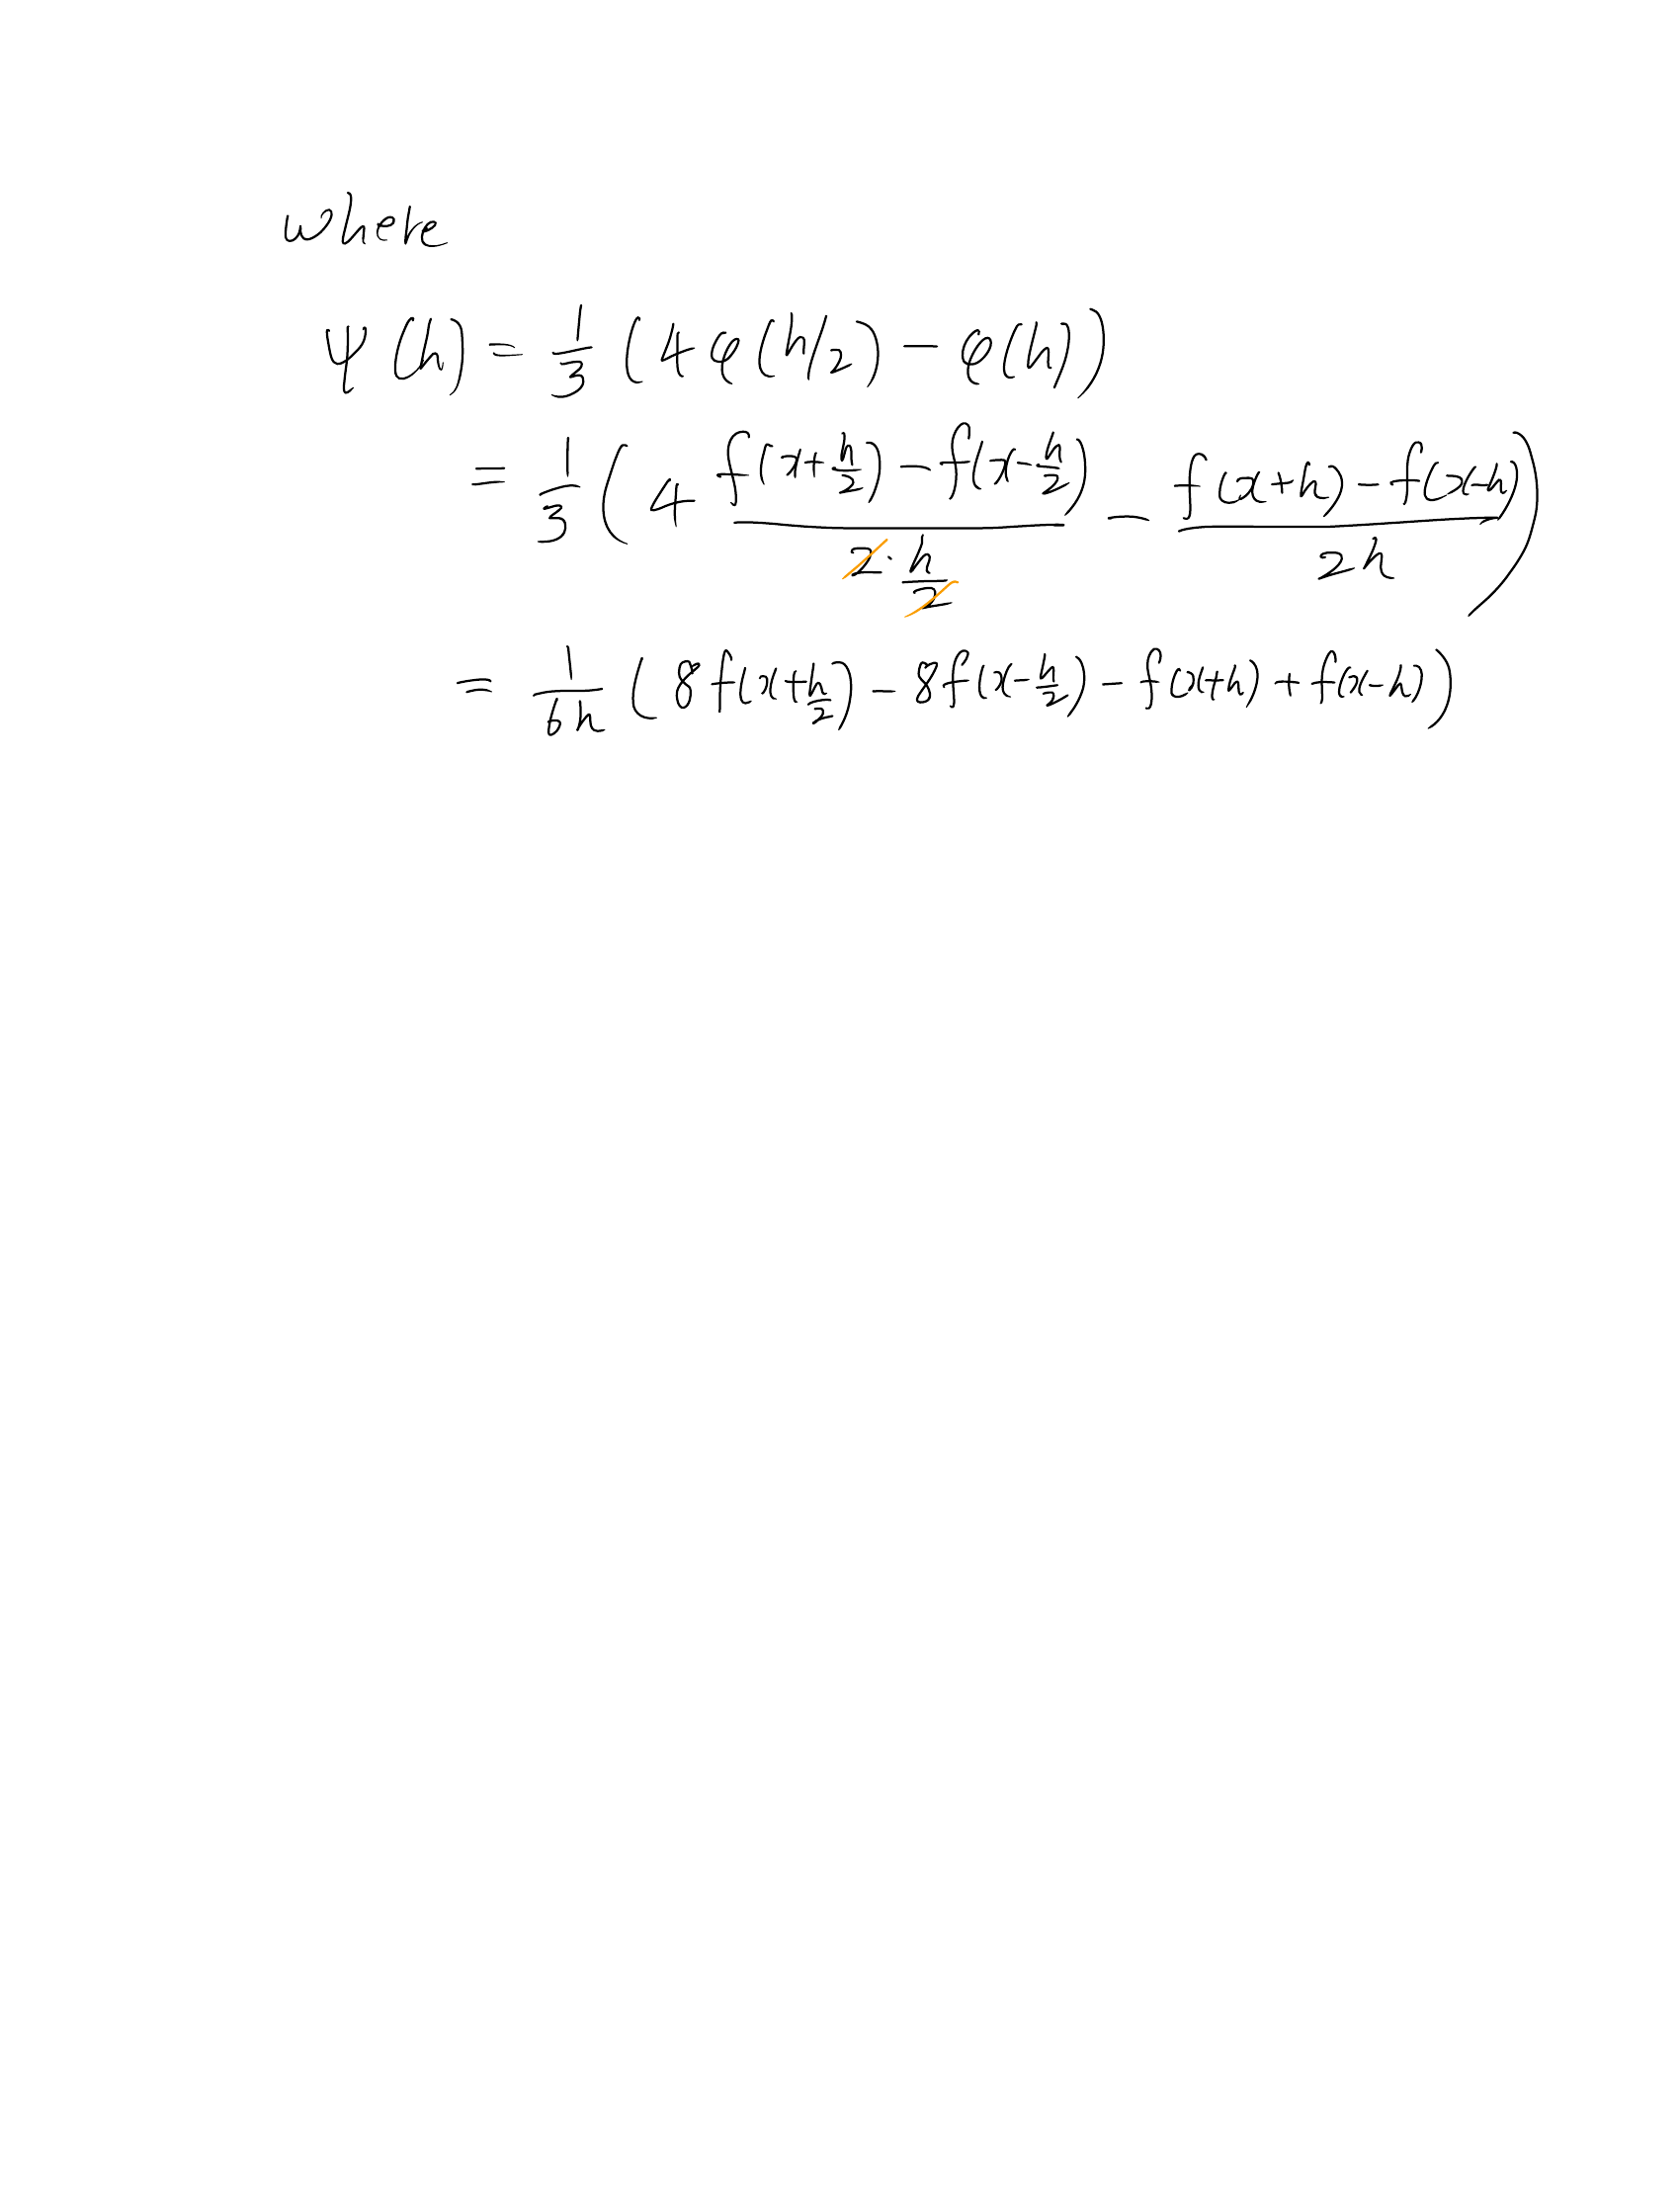 where
ψ(h) = 1/3 (4φ(h/2) − φ(h))
= 1/3 (4 (f(x+h/2) − f(x−h/2))/(2·h/2) − (f(x+h) − f(x−h))/(2h))
= 1/(6h) (8f(x+h/2) − 8f(x−h/2) − f(x+h) + f(x−h))